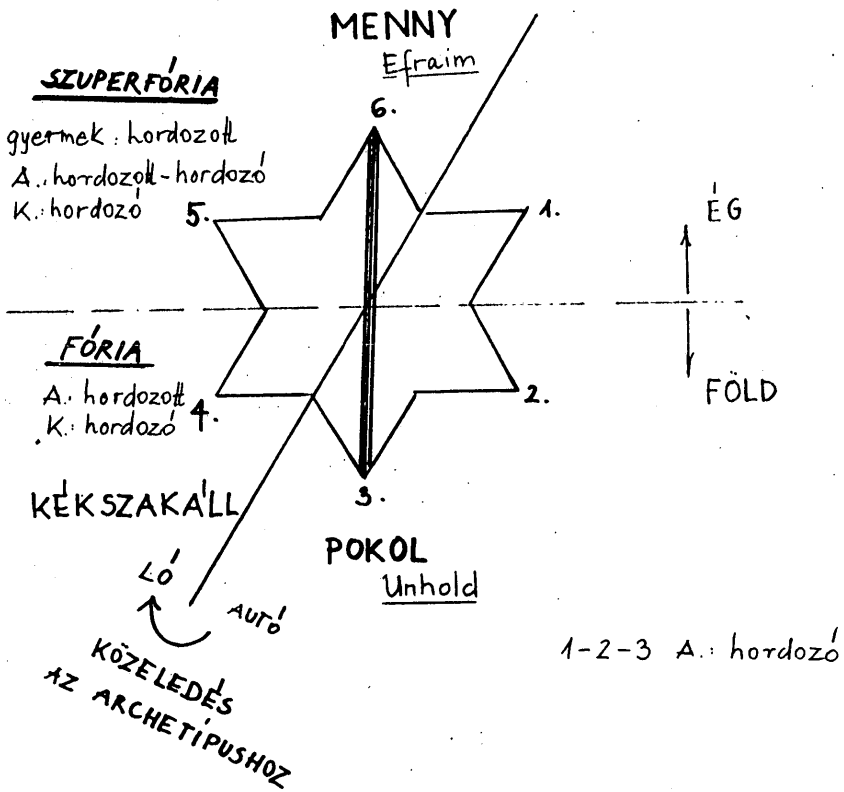 MENNY
Efraim
SZUPERFÓRIA
gyermek: hordozott
A.: hordozott-hordozó
K.: hordozó
6.
5.
1.
ÉG
FÓRIA
A.: hordozott
K.: hordozó
4.
2.
FÖLD
KÉKSZAKÁLL
3.
POKOL
Unhold
LÓ
AUTÓ
KÖZELEDÉS
AZ ARCHETÍPUSHOZ
1-2-3 A.: hordozó